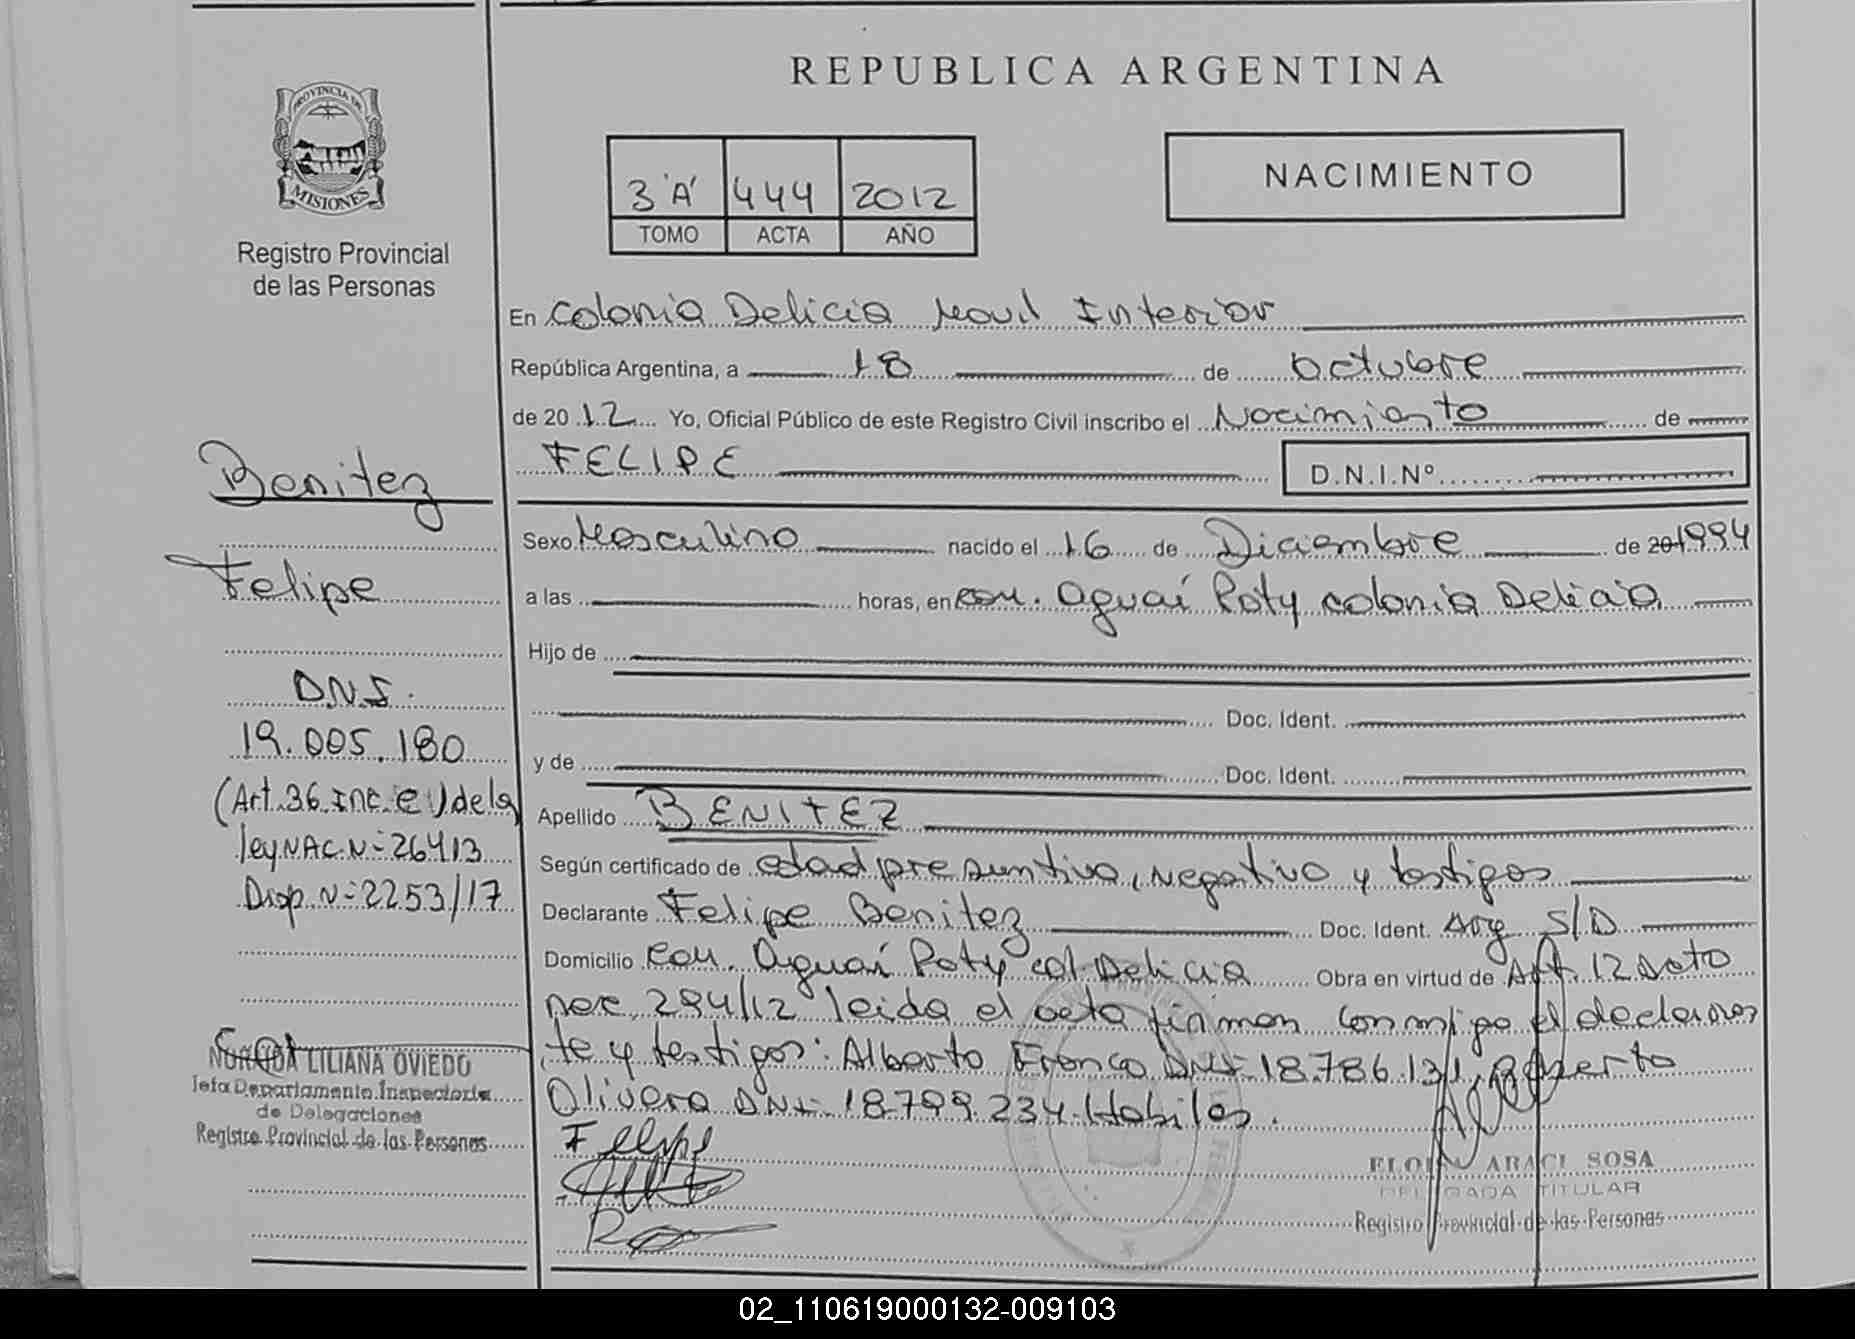 REPUBLICA ARGENTINA
PROVINCIA DE
MISIONES
Registro Provincial
de las Personas
3 'A' 444 2012
TOMO ACTA AÑO
NACIMIENTO
En Colonia Delicia Movil Interior
República Argentina, a 18 de octubre
de 2012 Yo, Oficial Público de este Registro Civil inscribo el Nacimiento de
FELIPE D.N.I.Nº
Sexo Masculino nacido el 16 de Diciembre de 201994
a las horas, en com. Aguaí Poty colonia Delicia
Hijo de
Doc. Ident.
y de Doc. Ident.
Apellido BENITEZ
Según certificado de edad presuntiva, Negativo y testigos
Declarante Felipe Benitez Doc. Ident. Arg S/D
Domicilio com. Aguaí Poty col. Delicia Obra en virtud de Art. 12 Dcto
294/12 leida el acta firman conmigo el declaran
te y testigos: Alberto Franco DNI 18.786.131, Roberto
Olivera DNI 18.799.234. Habiles.
Felipe
FLOR ARACI SOSA
DELEGADA TITULAR
Registro Provincial de las Personas
Benitez
Felipe
D.N.I.
19.005.180
(Art. 36 Inc. e) de la
ley NAC. N- 26413
Disp. N- 2253/17
LILIANA OVIEDO
Jefa Departamento Inspectoría
de Delegaciones
Registro Provincial de las Personas
02_110619000132-009103